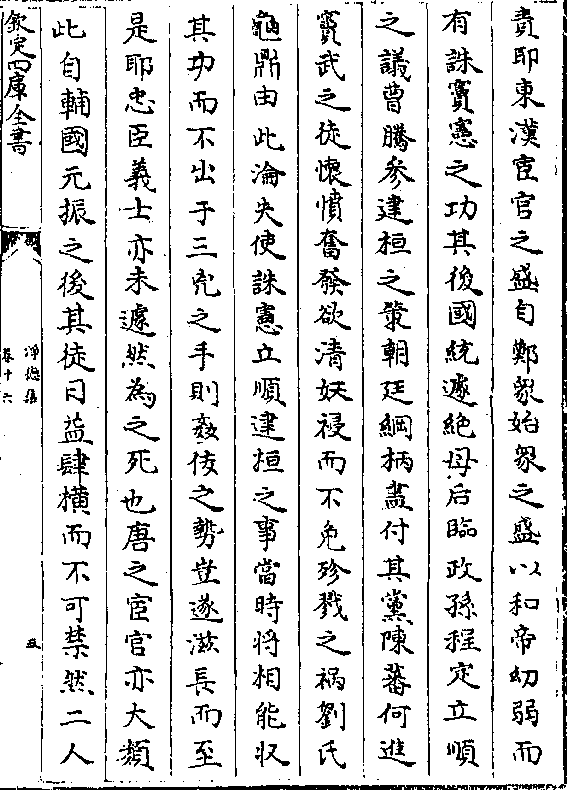 責耶東漢宦官之盛自鄭衆始衆之盛以和帝幼弱而
有誅竇憲之功其後國統遽絶母后臨政孫程定立順
之議曹騰參建桓之策朝廷綱柄盡付其黨陳蕃何進
竇武之徒懷憤奮發欲清妖祲而不免殄戮之禍劉氏
龜鼎由此淪失使誅憲立順建桓之事當時將相能收
其功而不出于三兇之手則姦佞之勢豈遂滋長而至
是耶忠臣義士亦未遽然為之死也唐之宦官亦大類
此自輔國元振之後其徒日益肆橫而不可禁然二人
欽定四庫全書
淨德集
卷十六
五